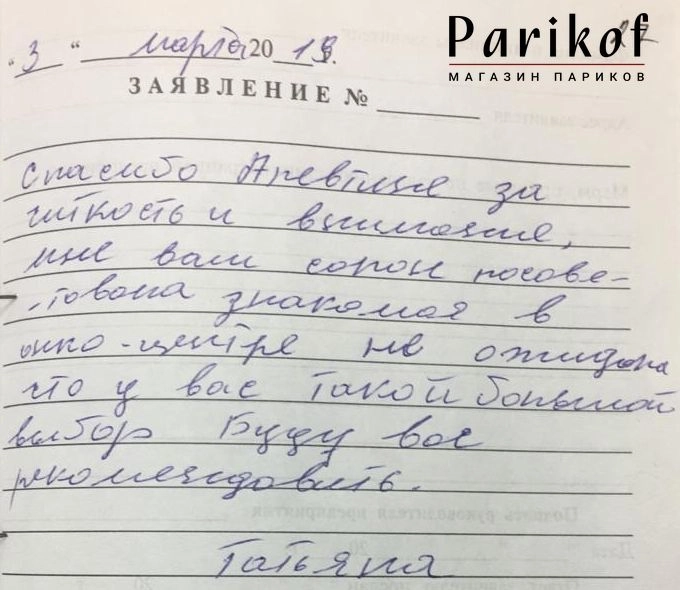 Parikof
МАГАЗИН ПАРИКОВ
27
"3" марта 2019г.
ЗАЯВЛЕНИЕ №
Спасибо за
читкость и внимание,
мне ваш солон посове-
товала знакомая в
онко-центре не ожидала
что у вас такой большой
выбор Буду вас
рекомендовать.
Татьяна